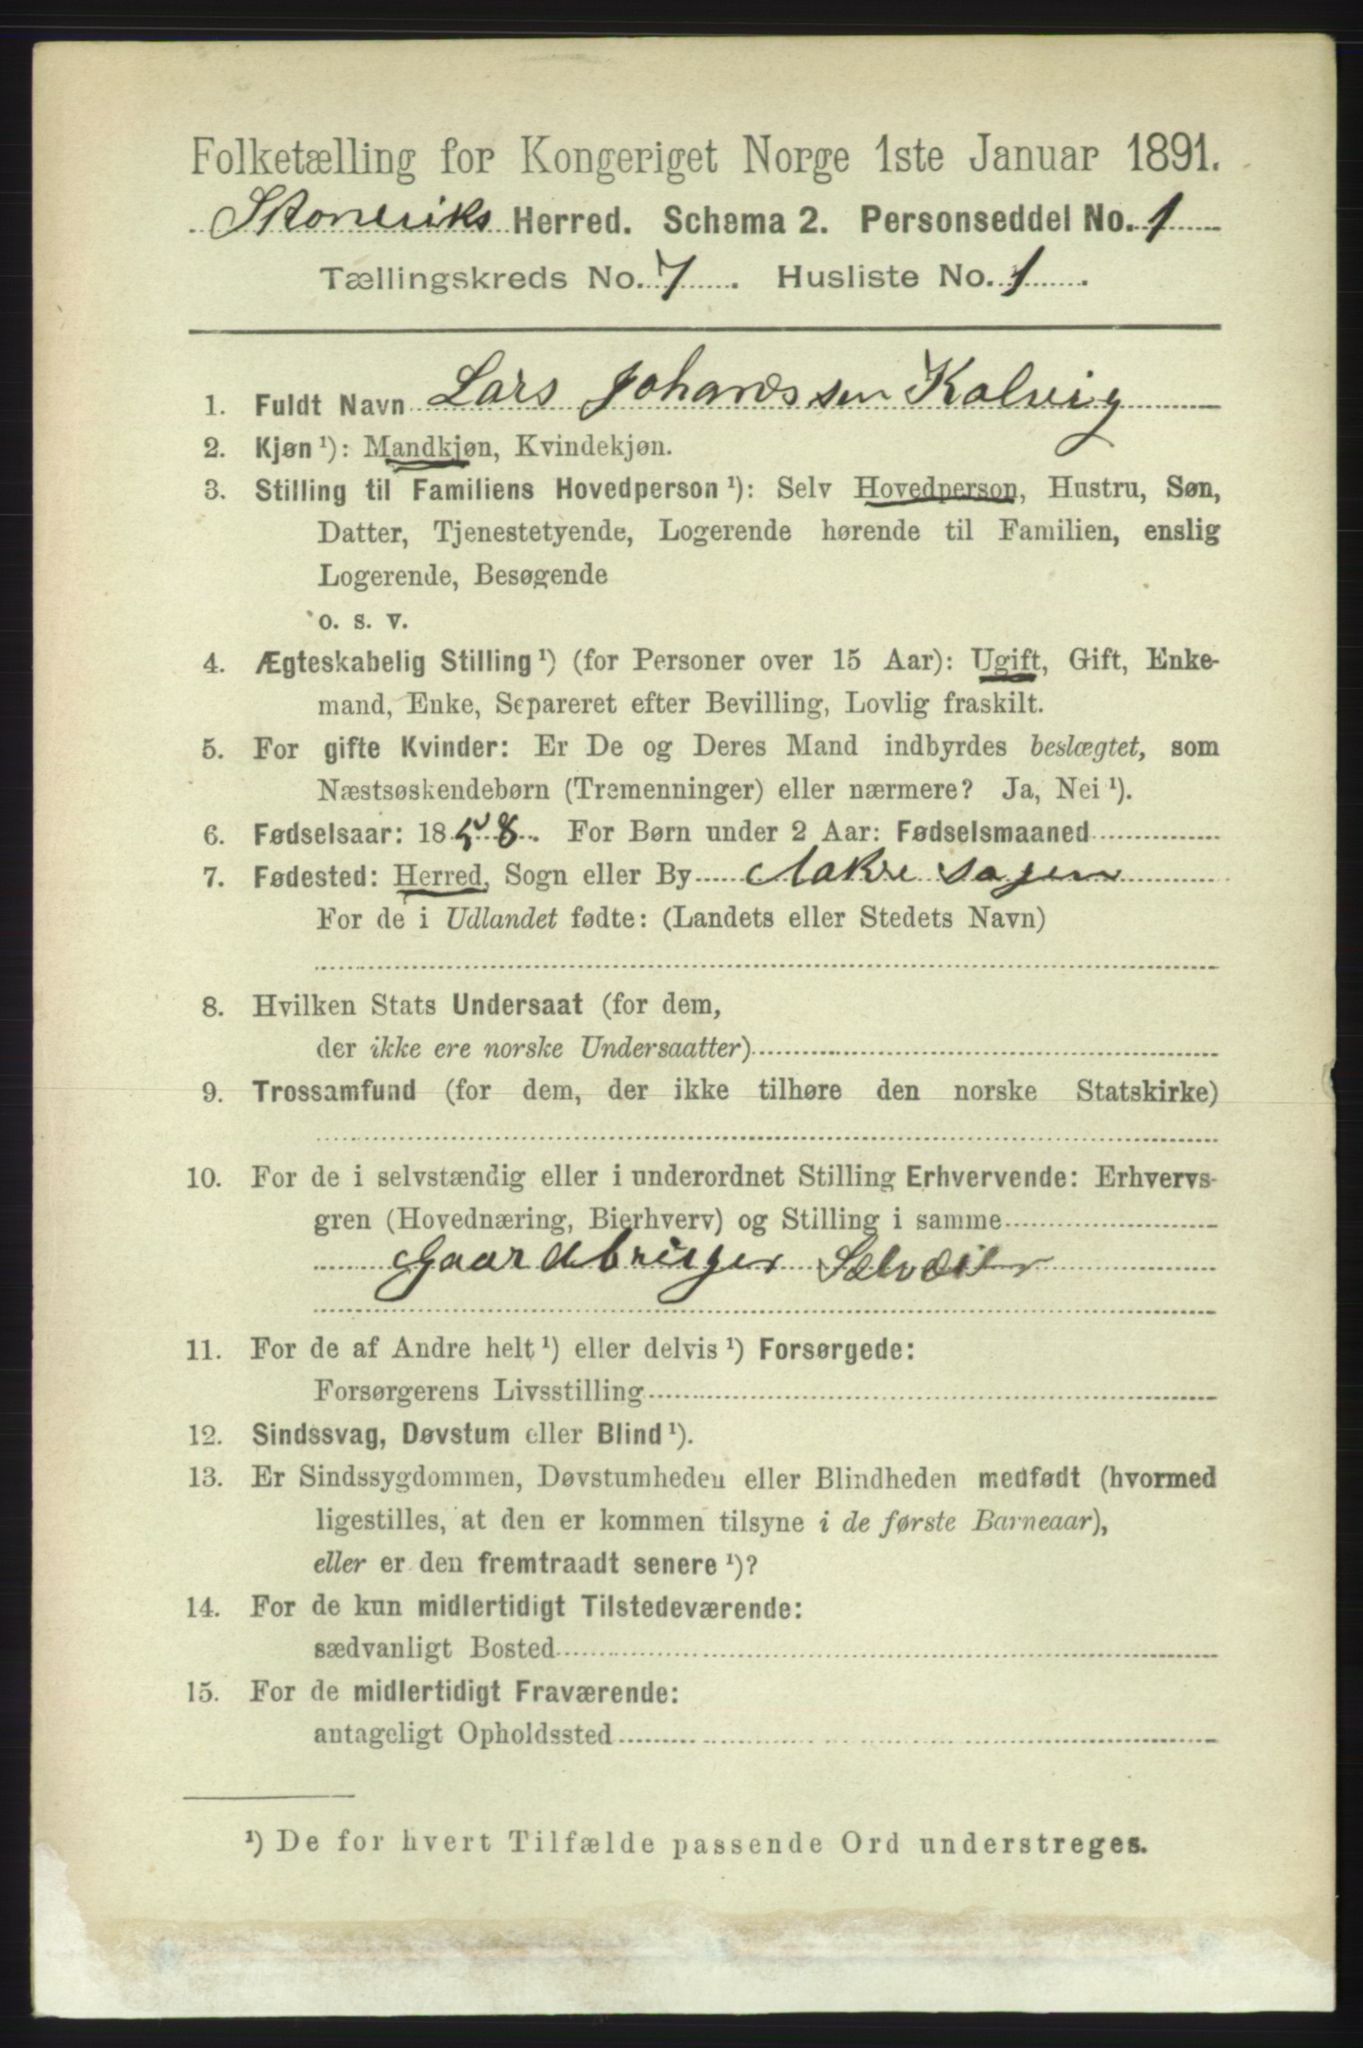 Folketælling for Kongeriget Norge 1ste Januar 1891.
Skoneviks Herred. Schema 2. Personseddel No. 1
Tællingskreds No. 7. Husliste No. 1.
1. Fuldt Navn Lars Johannssen Kalvig
2. Kjøn ¹): Mandkjøn, Kvindekjøn.
3. Stilling til Familiens Hovedperson ¹): Selv Hovedperson, Hustru, Søn,
Datter, Tjenestetyende, Logerende hørende til Familien, enslig
Logerende, Besøgende
o. s. v.
4. Ægteskabelig Stilling ¹) (for Personer over 15 Aar): Ugift, Gift, Enke-
mand, Enke, Separeret efter Bevilling, Lovlig fraskilt.
5. For gifte Kvinder: Er De og Deres Mand indbyrdes beslægtet, som
Næstsøskendebørn (Tremenninger) eller nærmere? Ja, Nei ¹).
6. Fødselsaar: 1858. For Børn under 2 Aar: Fødselsmaaned
7. Fødested: Herred, Sogn eller By Aakre sogn
For de i Udlandet fødte: (Landets eller Stedets Navn)
8. Hvilken Stats Undersaat (for dem,
der ikke ere norske Undersaatter)
9. Trossamfund (for dem, der ikke tilhøre den norske Statskirke)
10. For de i selvstændig eller i underordnet Stilling Erhvervende: Erhvervs-
gren (Hovednæring, Bierhverv) og Stilling i samme
Gaardbruger Selveier
11. For de af Andre helt ¹) eller delvis ¹) Forsørgede:
Forsørgerens Livsstilling
12. Sindssvag, Døvstum eller Blind ¹).
13. Er Sindssygdommen, Døvstumheden eller Blindheden medfødt (hvormed
ligestilles, at den er kommen tilsyne i de første Barneaar),
eller er den fremtraadt senere ¹)?
14. For de kun midlertidigt Tilstedeværende:
sædvanligt Bosted
15. For de midlertidigt Fraværende:
antageligt Opholdssted
¹) De for hvert Tilfælde passende Ord understreges.